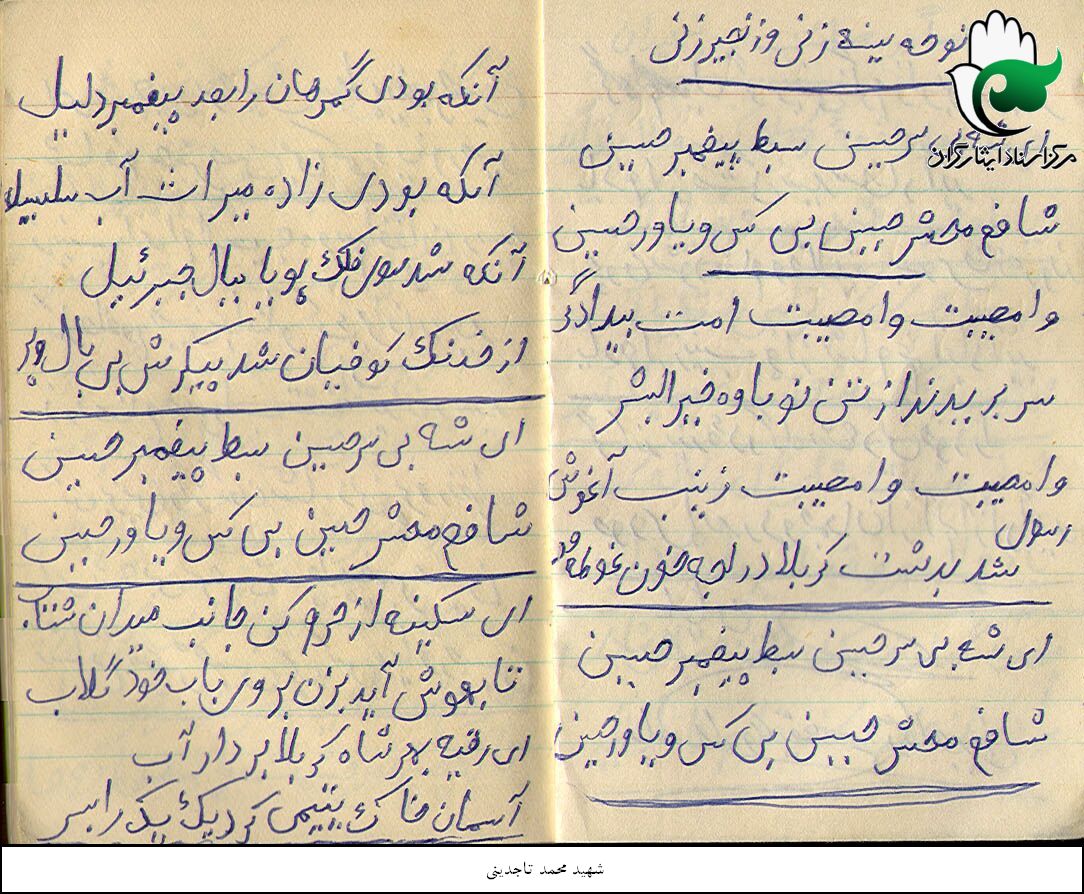 نوحه سینه زنی و زنجیر زنی
مرکز اسناد ایثارگران
سر حسین سبط پیغمبر حسین
شافع محشر حسین بی کس و یاور حسین
وا مصیبت وا مصیبت امت بیدادگر
سر بریدند از تن نوباوه خیر البشر
وا مصیبت وا مصیبت زینب آغوش
رسول
شد بدشت کربلا در لجه خون غوطه‌ور
ای شه بی سر حسین سبط پیغمبر حسین
شافع محشر حسین بی کس و یاور حسین
آنکه بودی گمرهان را بعد پیغمبر دلیل
آنکه بودی زاده میراث آب سلسبیل
آنکه شد سوی فلک پویا ببال جبرئیل
از خدنگ کوفیان شد پیکرش بی بال و پر
ای شه بی سر حسین سبط پیغمبر حسین
شافع محشر حسین بی کس و یاور حسین
ای سکینه از حرم کن جانب میدان شتاب
تا بهوش آید بزن بروی باب خود گلاب
ای رقیه بهر شاه کربلا بردار آب
آسمان خاک یتیمی کرد یک یک را بسر
شهید محمد تاجدینی